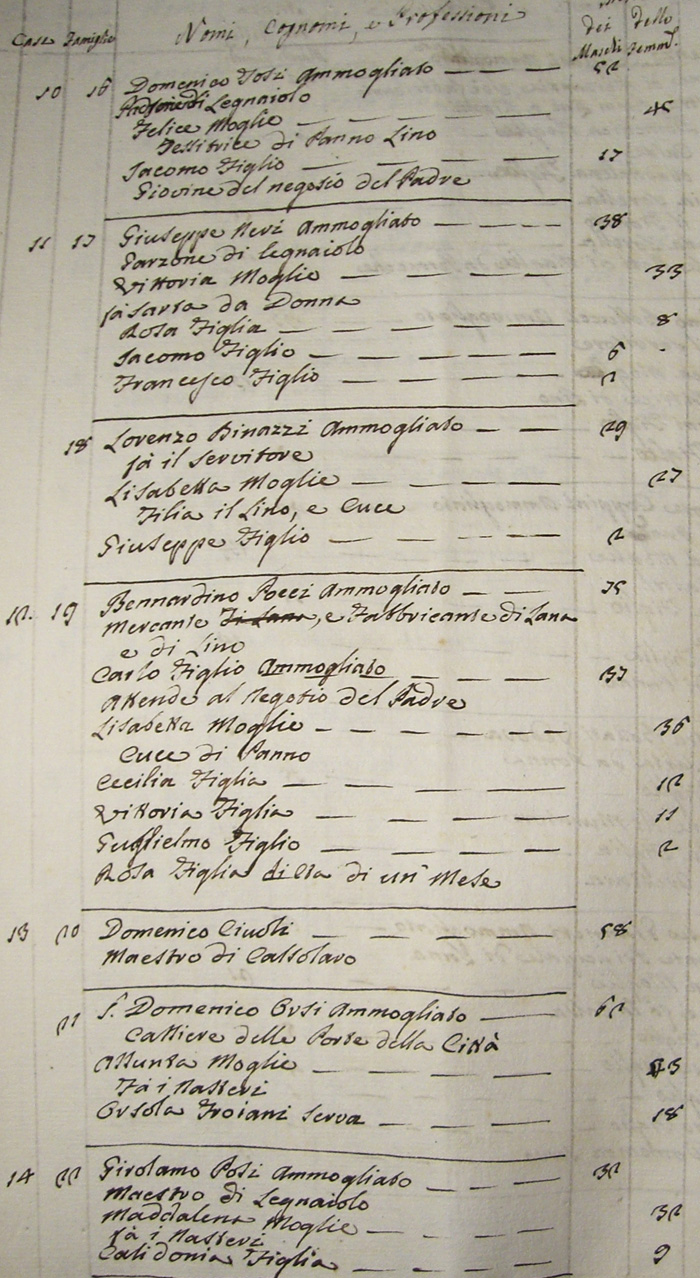 Case Famiglie Nomi, Cognomi, e Professioni dei Maschi delle Femm.
10 16 Domenico Tosi Ammogliato 52
di Legnaiolo
Felice Moglie 45
Tessitrice di Panno Lino
Jacomo Figlio 17
Giovine del negozio del Padre
11 17 Giuseppe Neri Ammogliato 38
Garzone di legnaiolo
Vittoria Moglie 33
fà Sarta da Donna
Rosa Figlia 8
Jacomo Figlio 6
Francesco Figlio 2
18 Lorenzo Binazzi Ammogliato 29
fà il Servitore
Lisabetta Moglie 27
Filia il Lino, e Cuce
Giuseppe Figlio 2
12. 19 Bernardino Pocci Ammogliato 75
Mercante di Lana, e Fabbricante di Lana
e di Lino
Carlo Figlio Ammogliato 37
Attende al Negozio del Padre
Lisabetta Moglie 36
Cuce di Panno
Cecilia Figlia 12
Vittoria Figlia 11
Guglielmo Figlio 2
Rosa Figlia di età di un Mese
13 20 Domenico Ciuoli 58
Maestro di Calzolaro
21 S. Domenico Orsi Ammogliato 62
Cassiere delle Porte della Città
Assunta Moglie
Fà i Nasteri
Orsola Troiani Serva 18
14 22 Girolamo Posi Ammogliato 32
Maestro di Legnaiolo
Maddalena Moglie 32
fà i Nasteri
Calidonia Figlia 9